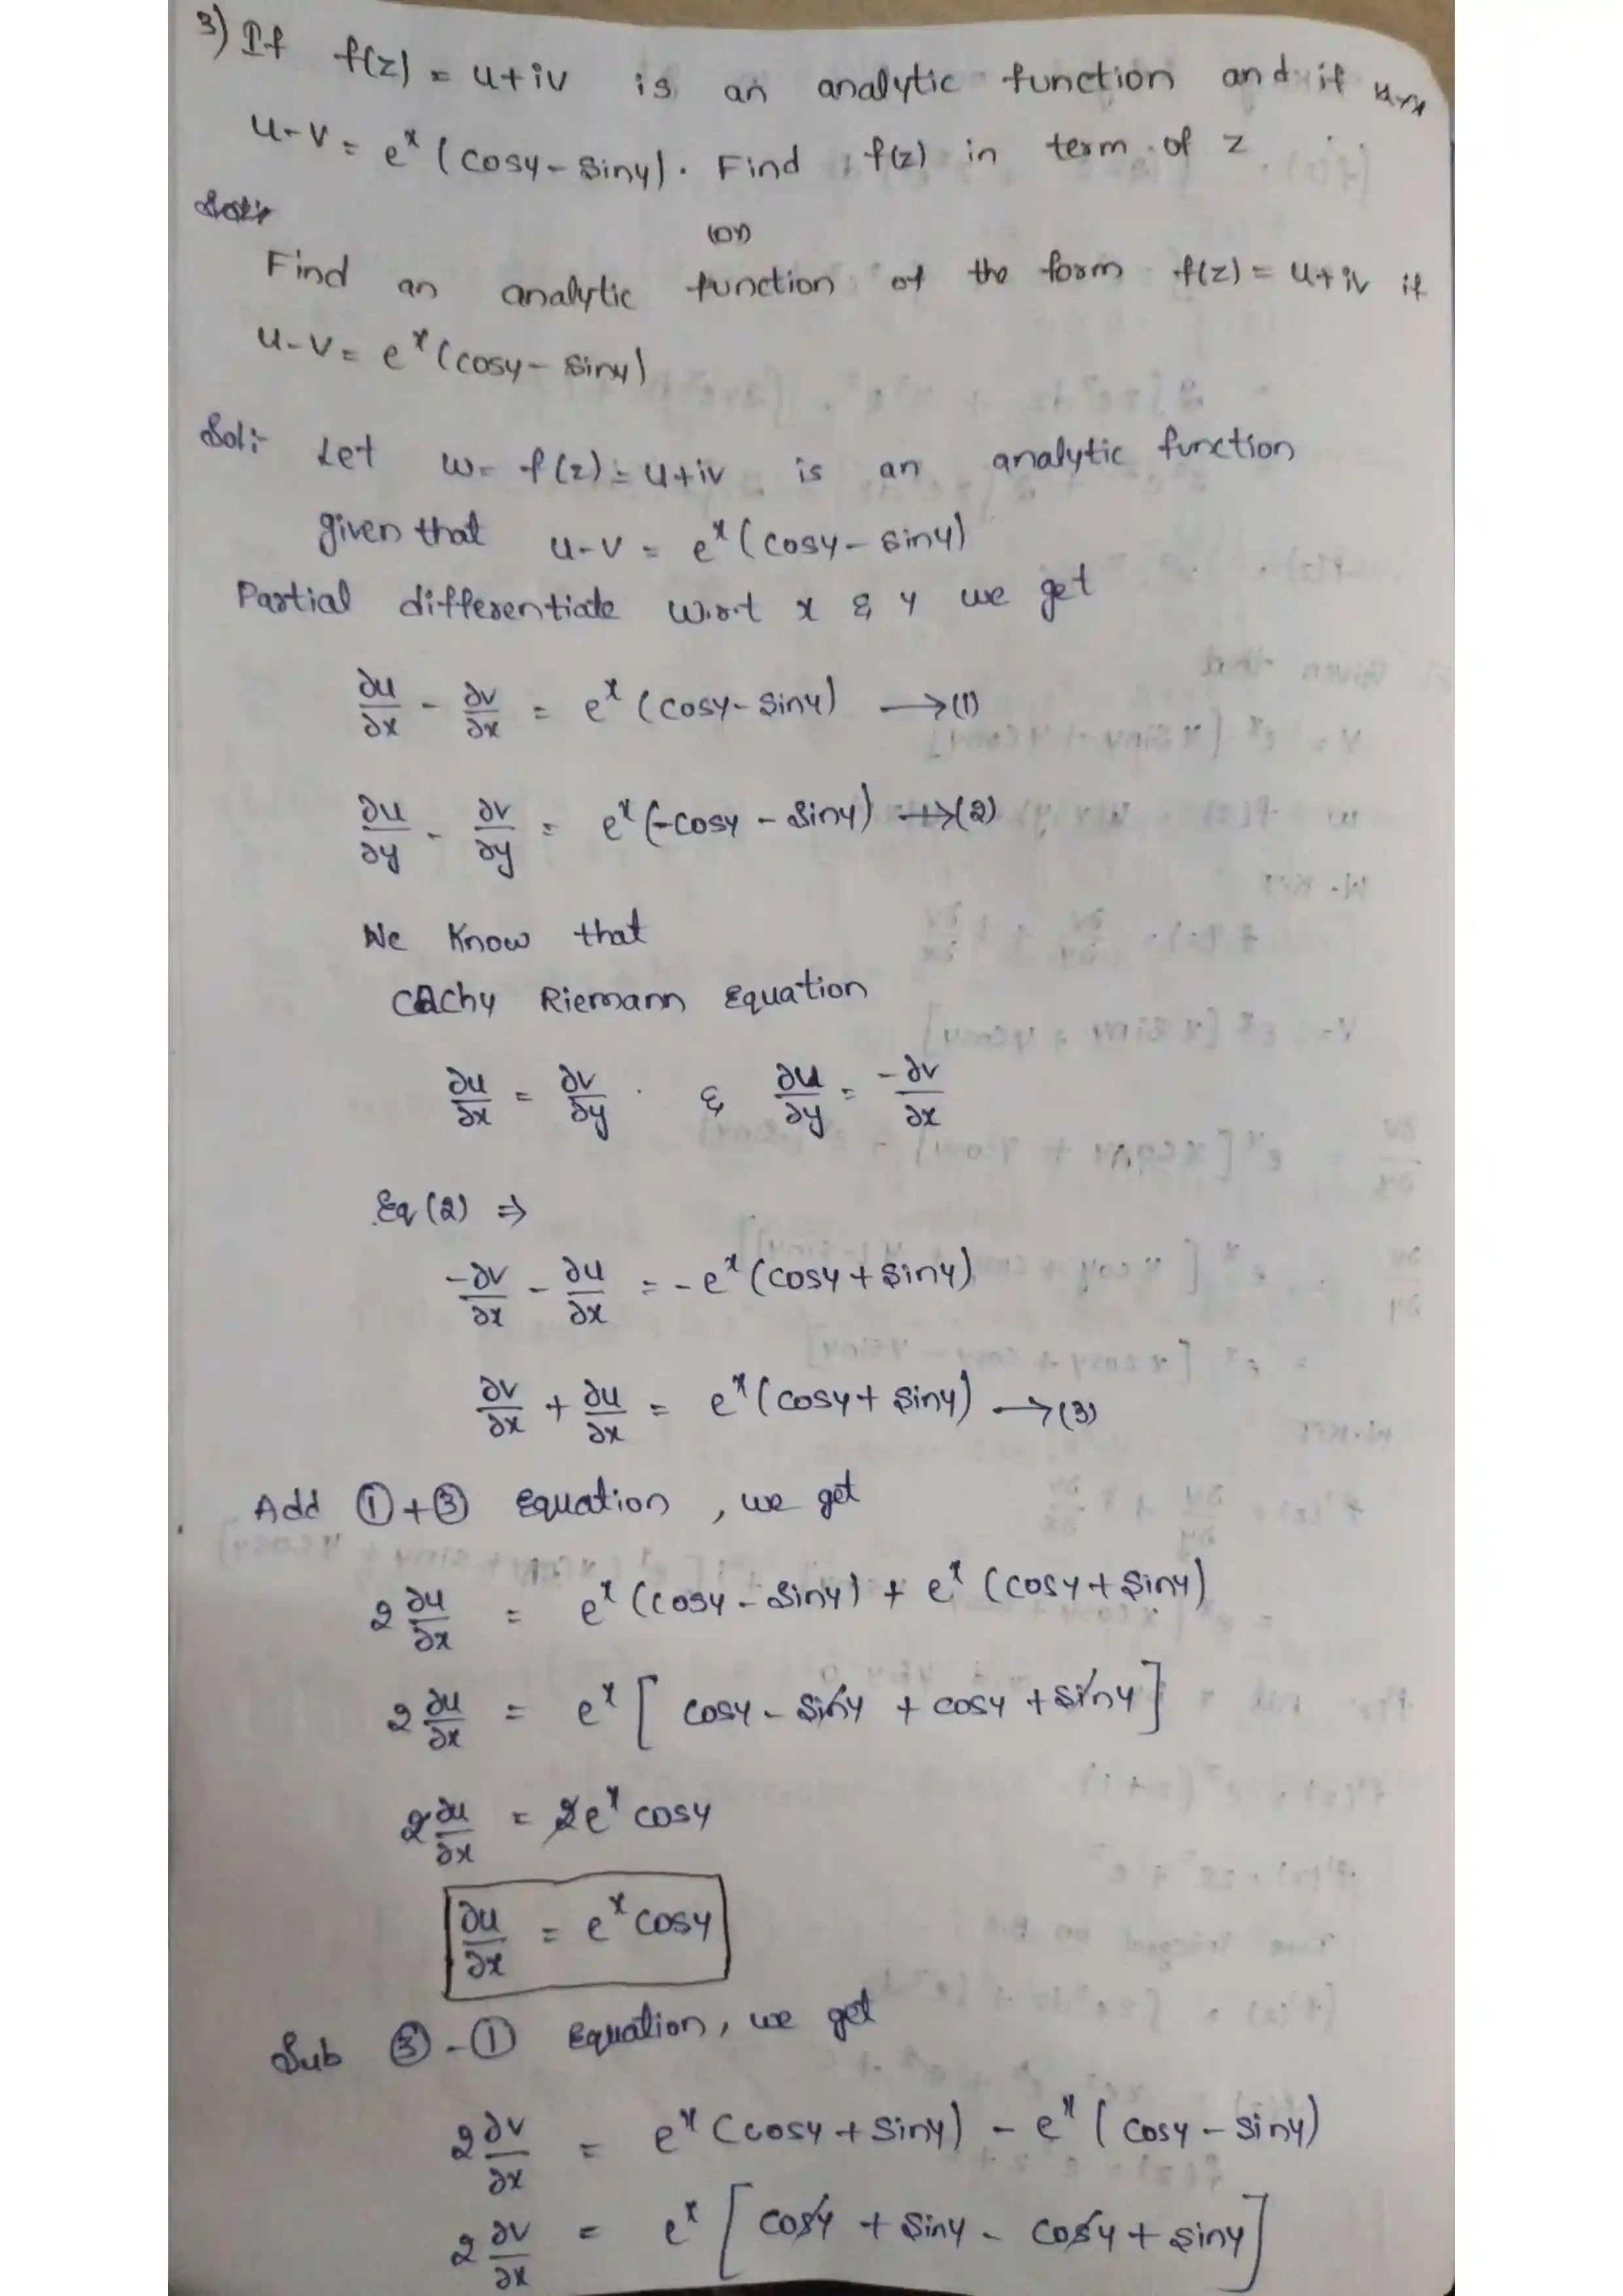 3) If f(z) = u+iv is an analytic function and if
u-v = e^x (cosy - siny). Find f(z) in term of z
(or)
Find an analytic function of the form f(z) = u+iv if
u-v = e^x (cosy - siny)
Sol:- Let w = f(z) = u+iv is an analytic function
given that u-v = e^x (cosy - siny)
Partial differentiate w.r.t x & y we get
∂u/∂x - ∂v/∂x = e^x (cosy - siny) →(1)
∂u/∂y - ∂v/∂y = e^x (-cosy - siny) →(2)
We Know that
Cachy Riemann Equation
∂u/∂x = ∂v/∂y & ∂u/∂y = -∂v/∂x
Eq (2) ⇒
-∂v/∂x - ∂u/∂x = -e^x (cosy + siny)
∂v/∂x + ∂u/∂x = e^x (cosy + siny) →(3)
Add ①+③ Equation, we get
2 ∂u/∂x = e^x (cosy - siny) + e^x (cosy + siny)
2 ∂u/∂x = e^x [cosy - siny + cosy + siny]
2 ∂u/∂x = 2e^x cosy
∂u/∂x = e^x cosy
Sub ③-① Equation, we get
2 ∂v/∂x = e^x (cosy + siny) - e^x (cosy - siny)
2 ∂v/∂x = e^x [cosy + siny - cosy + siny]